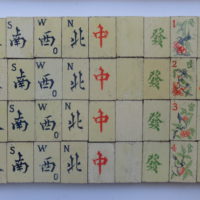 S W N 1
南 西 北 中 發
O
S W N 2
南 西 北 中 發
O
S W N 3
南 西 北 中 發
O
S W N 4
南 西 北 中 發
O